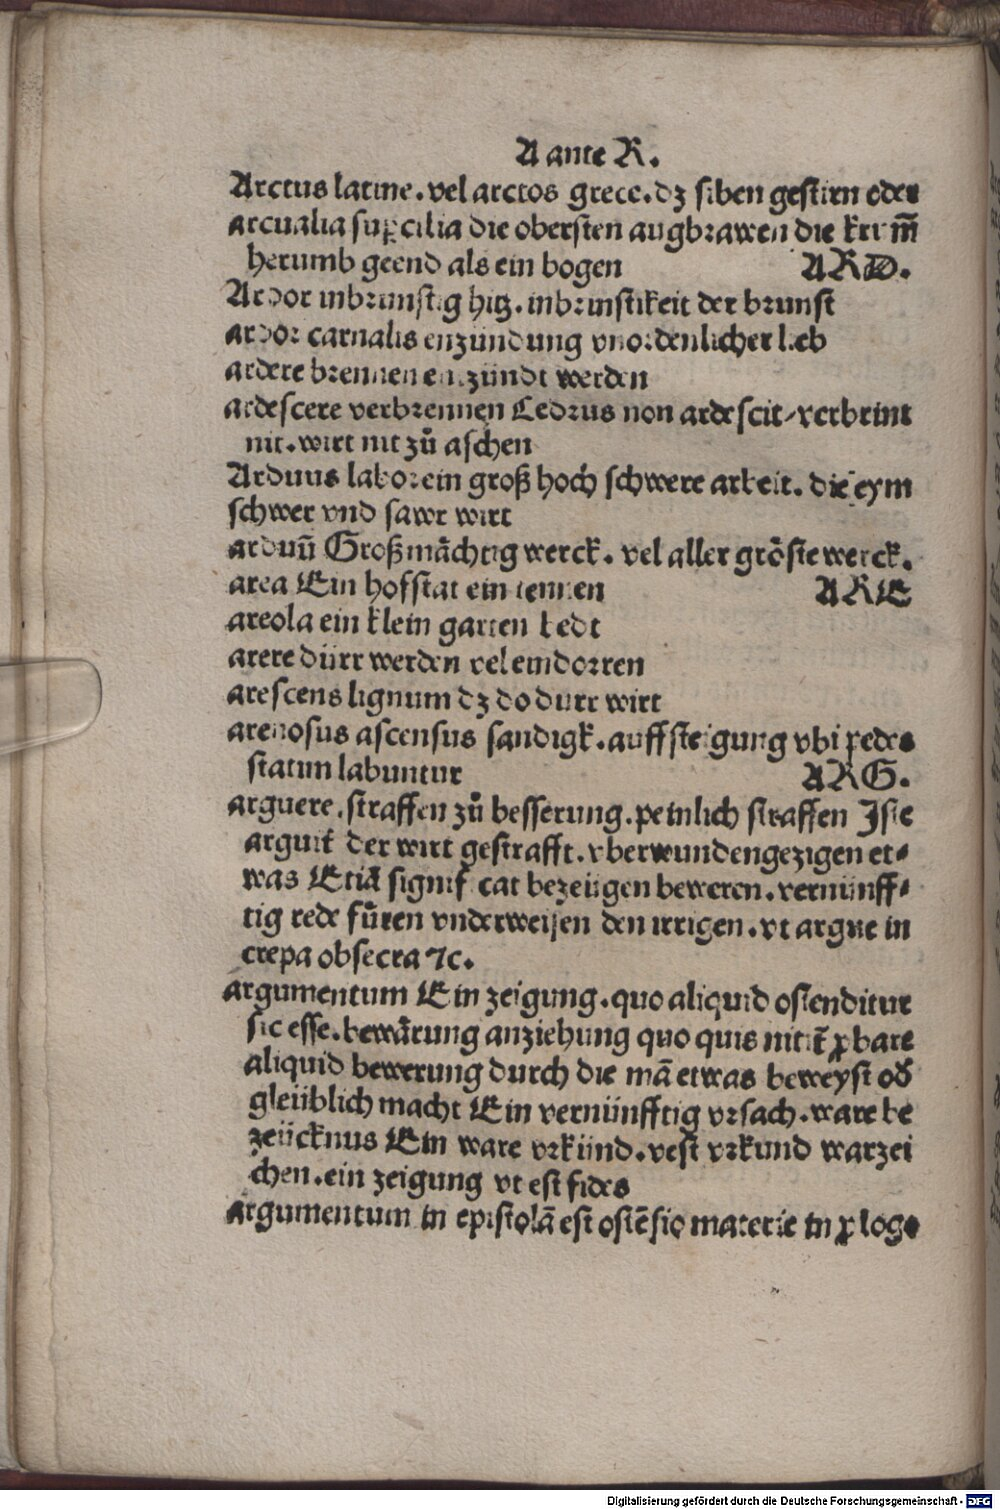 A ante R.
Arctus latine. vel arctos grece. dz siben gestirn oder
arcualia suꝑcilia die obersten augbrawen die krum̅
herumb geend als ein bogen ARD.
Ardor inbrunstig hitz. inbrinstikeit der brunst
ardor carnalis enzündung vnordenlicher lieb
ardere brennen enzündt werden
ardescere verbrennen Cedrus non ardescit/verbrint
nit. wirt nit zů aschen
Arduus labor ein groß hoch schwere arbeit. die eym
schwer vnd sawr wirt
arduū Großmächtig werck. vel aller gröste werck.
area Ein hofstat ein tennen ARE
areola ein klein garten bedt
arere dürr werden vel eindorren
arescens lignum dz do durr wirt
arenosus ascensus sandigk. auffsteigung vbi pedes
statim labuntur ARG.
arguere. straffen zů besserung. peinlich straffen Iste
arguit̄ der wirt gestrafft. vberwunden gezigen et⸗
was Etiā significat bezeügen beweren. vernünff⸗
tig rede fůren vnderweisen den irrigen. vt argue in
crepa obsecra ⁊c.
argumentum Ein zeigung. quo aliquid ostenditur
sic esse. bewärung anziehung quo quis nitit̄ ꝓbare
aliquid bewerung durch die mā etwas beweyst od̕
gleüblich macht Ein vernünfftig vrsach. ware be
zeücknus Ein ware vrkünd. vest vrkund warzei
chen. ein zeigung vt est fides
argumentum in epistolā est ostēsio materie in ꝓlogo
Digitalisierung gefördert durch die Deutsche Forschungsgemeinschaft - DFG